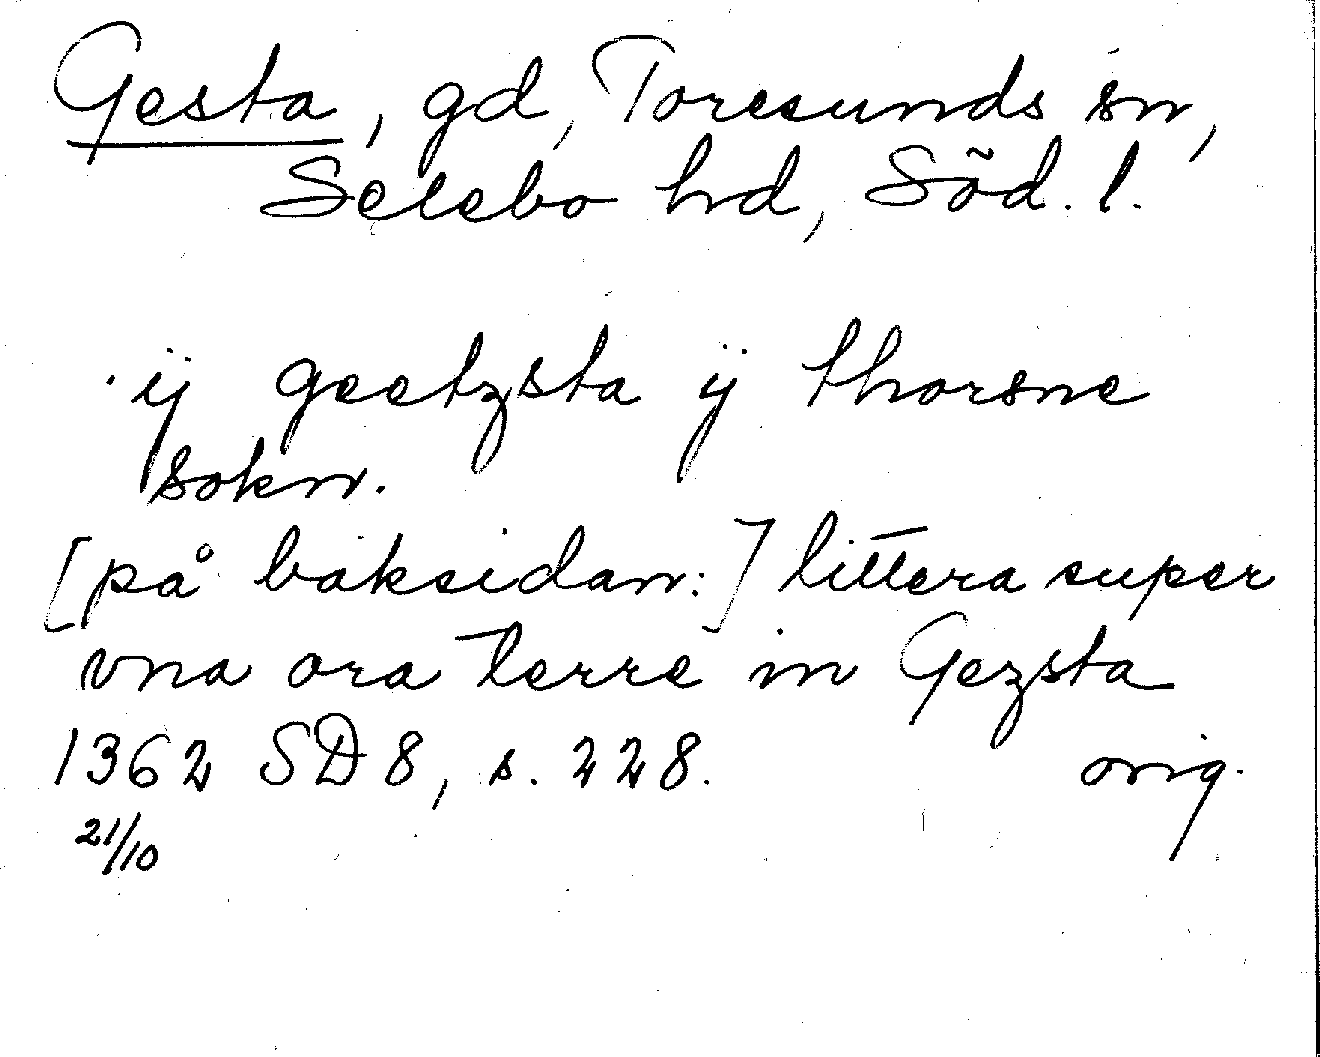 Gesta, gd, Toresunds sn,
Selebo hd, Söd. l.
ÿ geetzsta ÿ thorsne
sokn.
[på baksidan:] littera super
vna ora terre in Gezsta
1362 SD 8, s. 228. orig.
21/10